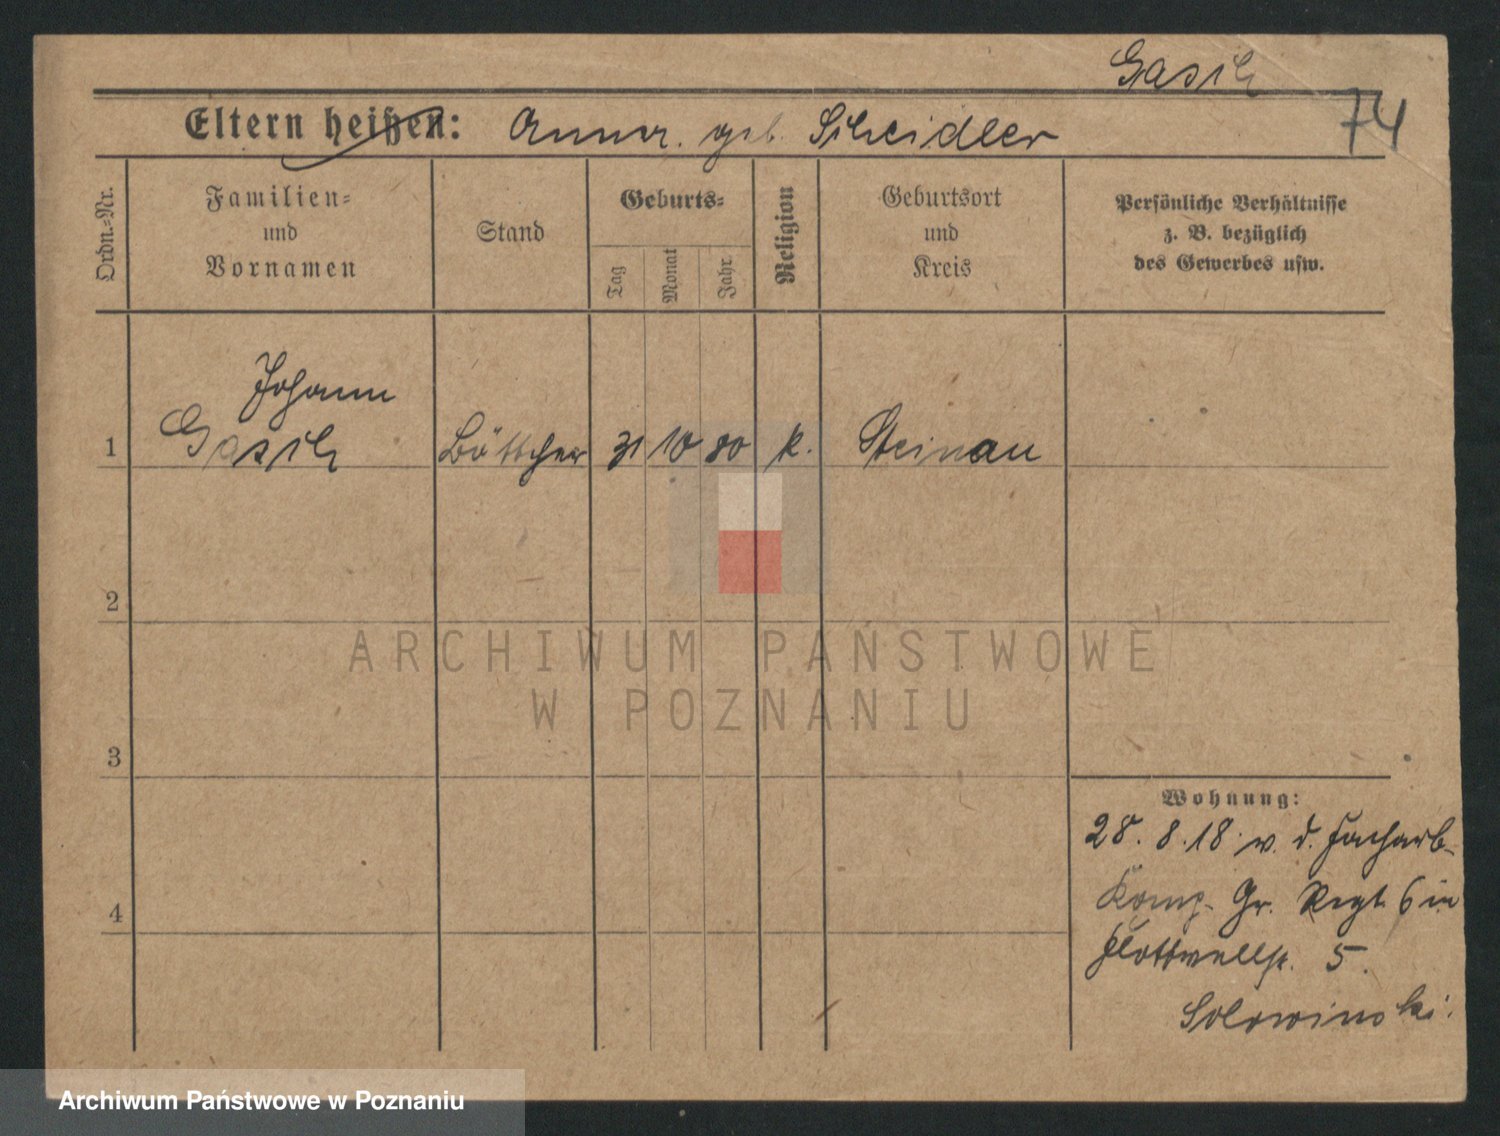 Gasih
74
Eltern heißen: Anna. geb. Scheidler
Ordn.-Nr.
Familien-
und
Vornamen
Stand
Geburts-
Tag
Monat
Jahr
Religion
Geburtsort
und
Kreis
Persönliche Verhältnisse
z. B. bezüglich
des Gewerbes usw.
Johann
1 Gasih Böttcher 31 10 80 k. Steinau
2
3
4
Wohnung:
28. 8. 18. v. d. Facharb-
Komp. Gr. Regt. 6 in
Flottwellstr. 5.
Solowinski.
ARCHIWUM PAŃSTWOWE
W POZNANIU
Archiwum Państwowe w Poznaniu